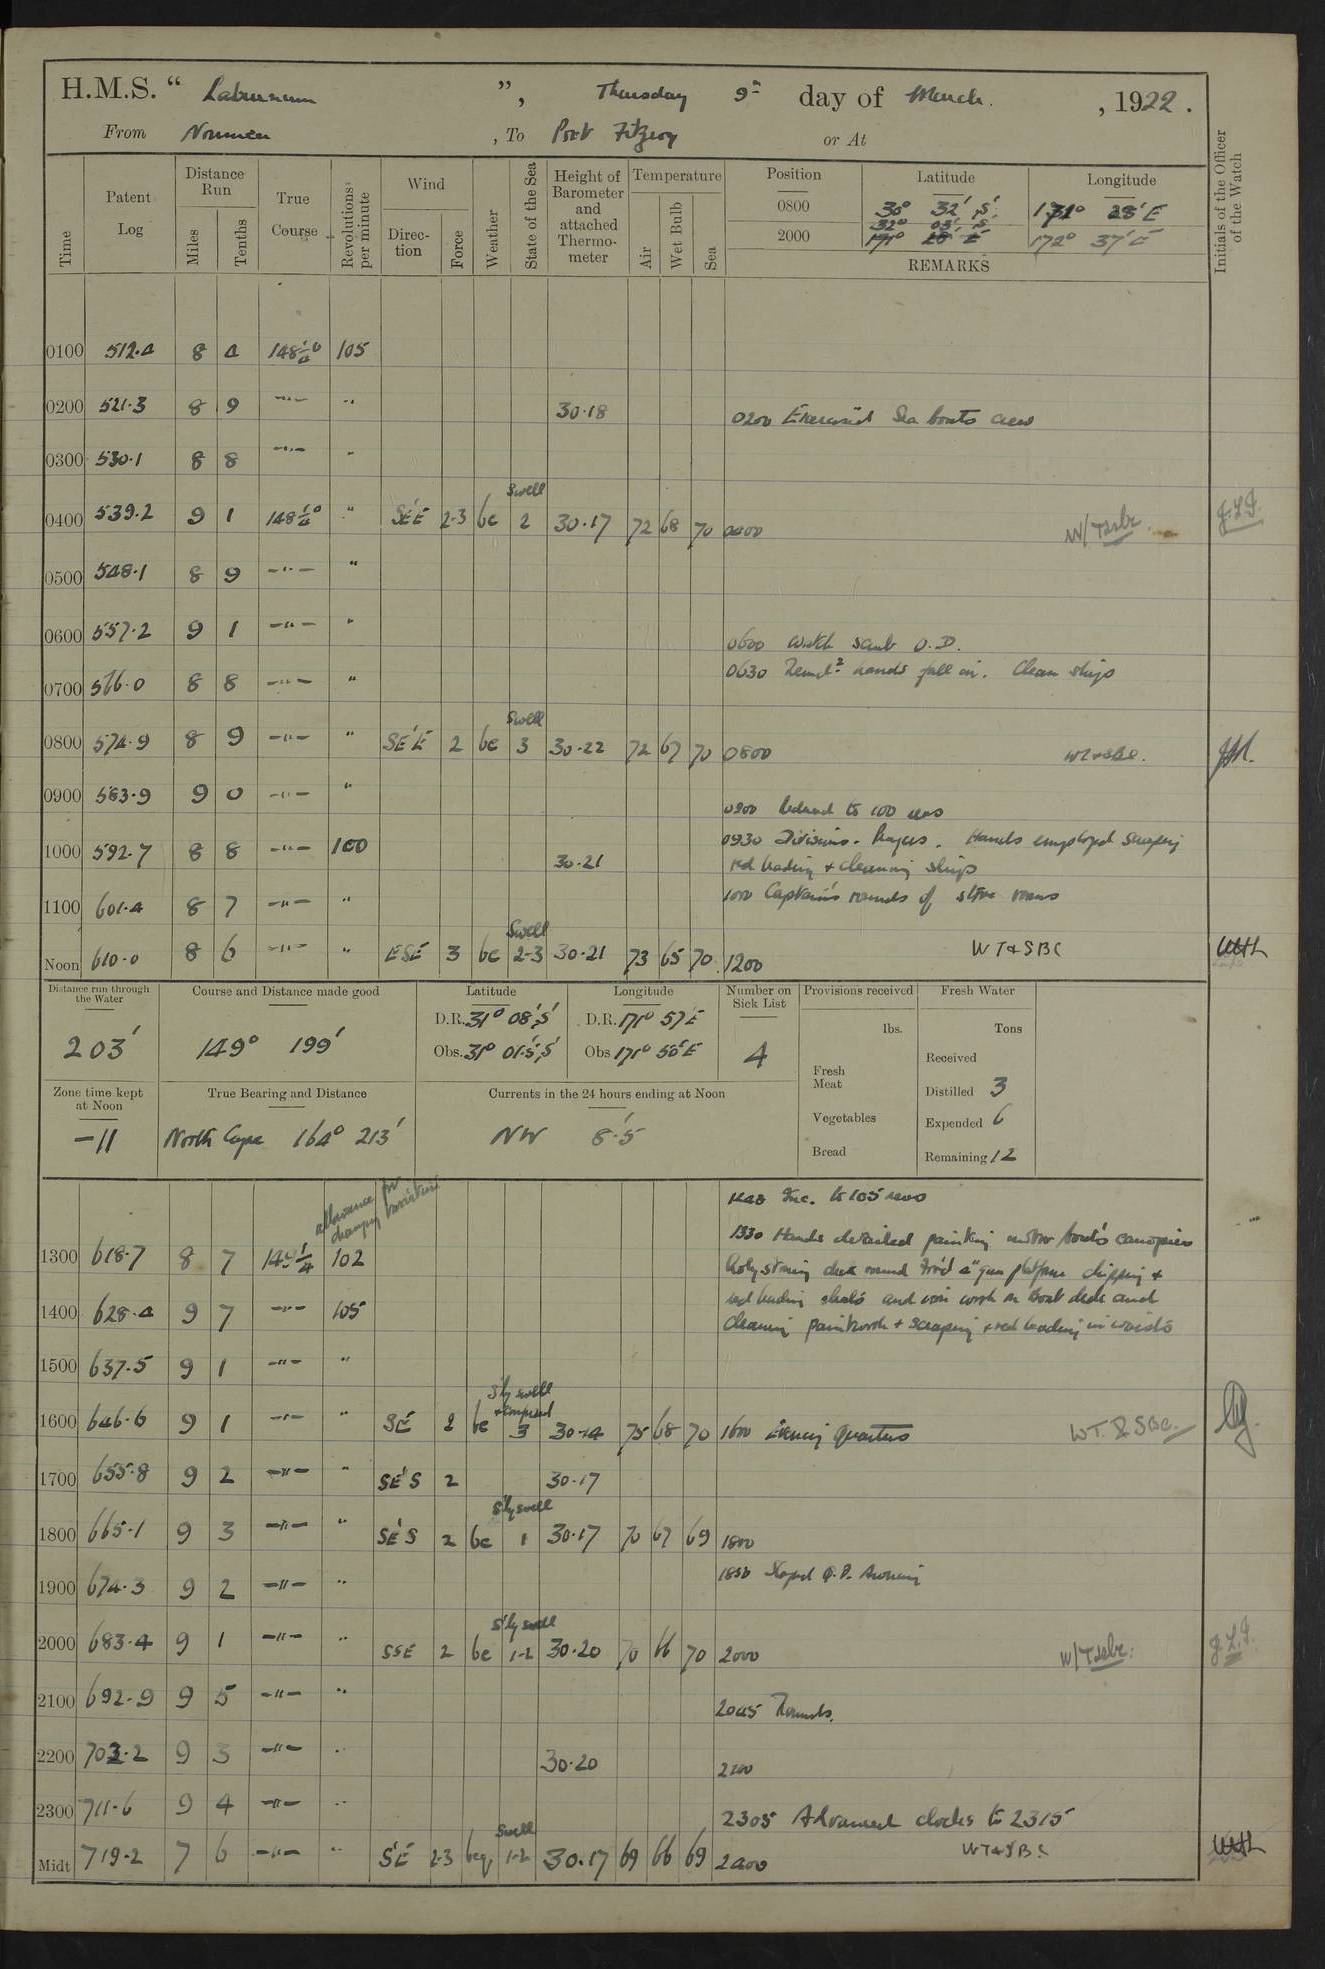 H.M.S. “ Laburnum ”, Thursday 9th day of March. , 1922.
From Noumea , To Port Fitzroy or At
Time Patent Log Distance Run Miles Tenths True Course Revolutions per minute Wind Direction Force Weather State of the Sea Height of Barometer and attached Thermometer Temperature Air Wet Bulb Sea Position Latitude Longitude Initials of the Officer of the Watch
0800 30° 32' S
2000 32° 03' S 172° 37' E
REMARKS
0100 512.4 8 4 148¼° 105
0200 521.3 8 9 —"— " 30.18 0200 Exercised Sea boats crew
0300 530.1 8 8 —"— "
0400 539.2 9 1 148¼° " SE'E 2-3 bc Swell 2 30.17 72 68 70 0400 W/T & sbc. J.L.J.
0500 548.1 8 9 —"— "
0600 557.2 9 1 —"— " 0600 Watch scrub Q.D.
0630 Remdr hands fall in. Clean ship
0700 566.0 8 8 —"— "
0800 574.9 8 9 —"— " SE'E 2 bc Swell 3 30.22 72 67 70 0800 WT & SBC.
0900 583.9 9 0 —"— "
0900 Reduced to 100 revs
0930 Divisions. Prayers. Hands employed scraping
1000 592.7 8 8 —"— 100 30.21 red leading & cleaning ship
1000 Captain's rounds of store rooms
1100 601.4 8 7 —"— "
Noon 610.0 8 6 —"— " ESE 3 bc Swell 2-3 30.21 73 65 70 1200 WT & SBC
Distance run through the Water Course and Distance made good Latitude Longitude Number on Sick List Provisions received Fresh Water
203' 149° 199' D.R. 31° 08' S D.R. 171° 57' E 4 lbs. Tons
Obs. 31° 01.5' S Obs 171° 50' E Fresh Meat Received
Zone time kept at Noon True Bearing and Distance Currents in the 24 hours ending at Noon Distilled 3
Vegetables Expended 6
–11 North Cape 164° 213' NW 8.5' Bread Remaining 12
allowance for changing variation
1248 Inc. to 105 revs
1330 Hands detailed painting motor boat's canopies
1300 618.7 8 7 149¼ 102 holystoning deck round Fr'd 4" gun platform chipping &
red leading and iron work on Boat deck and
1400 628.4 9 7 —"— 105 cleaning paintwork & scraping & red leading in waists
1500 637.5 9 1 —"— "
1600 646.6 9 1 —"— " SE 2 bc S'ly swell & confused 3 30.14 75 68 70 1600 Evening Quarters WT. & SBC.
1700 655.8 9 2 —"— " SE'S 2 30.17
1800 665.1 9 3 —"— " SE'S 2 bc S'ly swell 1 30.17 70 67 69 1800
1850 Sloped Q.D. Awning
1900 674.3 9 2 —"— "
2000 683.4 9 1 —"— " SSE 2 bc S'ly swell 1-2 30.20 70 66 70 2000 W/T & sbc. J.L.J.
2100 692.9 9 5 —"— " 2045 Rounds.
2200 703.2 9 3 —"— " 30.20 2200
2300 711.6 9 4 —"— " 2305 Advanced clocks to 2315
Midt 719.2 7 6 —"— " SE 2-3 bcq Swell 1-2 30.17 69 66 69 2400 WT & SBC